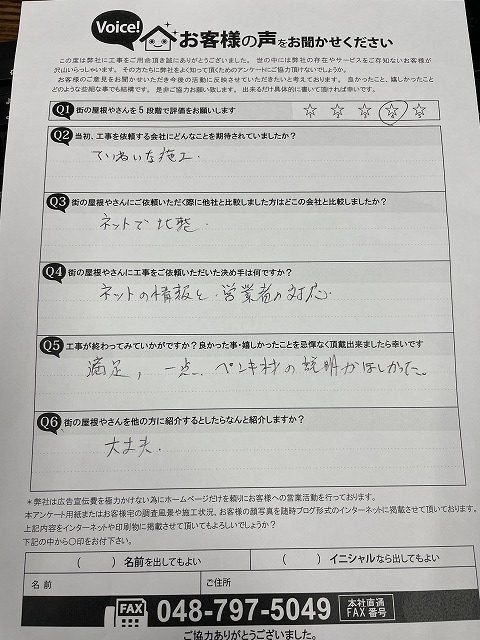 Voice! お客様の声をお聞かせください
この度は弊社に工事をご用命頂き誠にありがとうございます。世の中には弊社の存在やサービスをご存知ないお客様が
沢山いらっしゃいます。その方たちに弊社をよく知って頂くためのアンケートにご協力頂けないでしょうか。
お客様のご意見をお聞かせいただき今後の活動に反映させていただきたいと考えております。良かったこと、嬉しかったこと
どのような些細な事でも結構です。是非ご協力お願い致します。出来るだけ具体的に書いて頂ければ幸いです。
Q1 街の屋根やさんを5段階で評価をお願いします ☆ ☆ ☆ ☆ ☆
Q2 当初、工事を依頼する会社にどんなことを期待されていましたか？
ていねいな施工.
Q3 街の屋根やさんにご依頼いただく際に他社と比較しました方はどこの会社と比較しましたか？
ネットで比較.
Q4 街の屋根やさんに工事をご依頼いただいた決め手は何ですか？
ネットの情報と.営業者の対応.
Q5 工事が終わってみていかがですか？良かった事・嬉しかったことを忌憚なく頂戴出来ましたら幸いです
満足, 一点.ペンキ材の説明がほしかった。
Q6 街の屋根やさんを他の方に紹介するとしたらなんと紹介しますか？
大丈夫.
＊弊社は広告宣伝費を極力かけない為にホームページだけを頼りにお客様への営業活動を行っております。
本アンケート用紙またはお客様宅の調査風景や施工状況、お客様の顔写真を随時ブログ形式のインターネットに掲載させて頂いております。
上記内容をインターネットや印刷物に掲載させて頂いてもよろしいでしょうか？
下記の中から〇印をお付下さい。
（　　）名前を出してもよい （　　）イニシャルなら出してもよい
名前 ご住所
FAX 048-797-5049 本社直通 FAX番号
ご協力ありがとうございました。